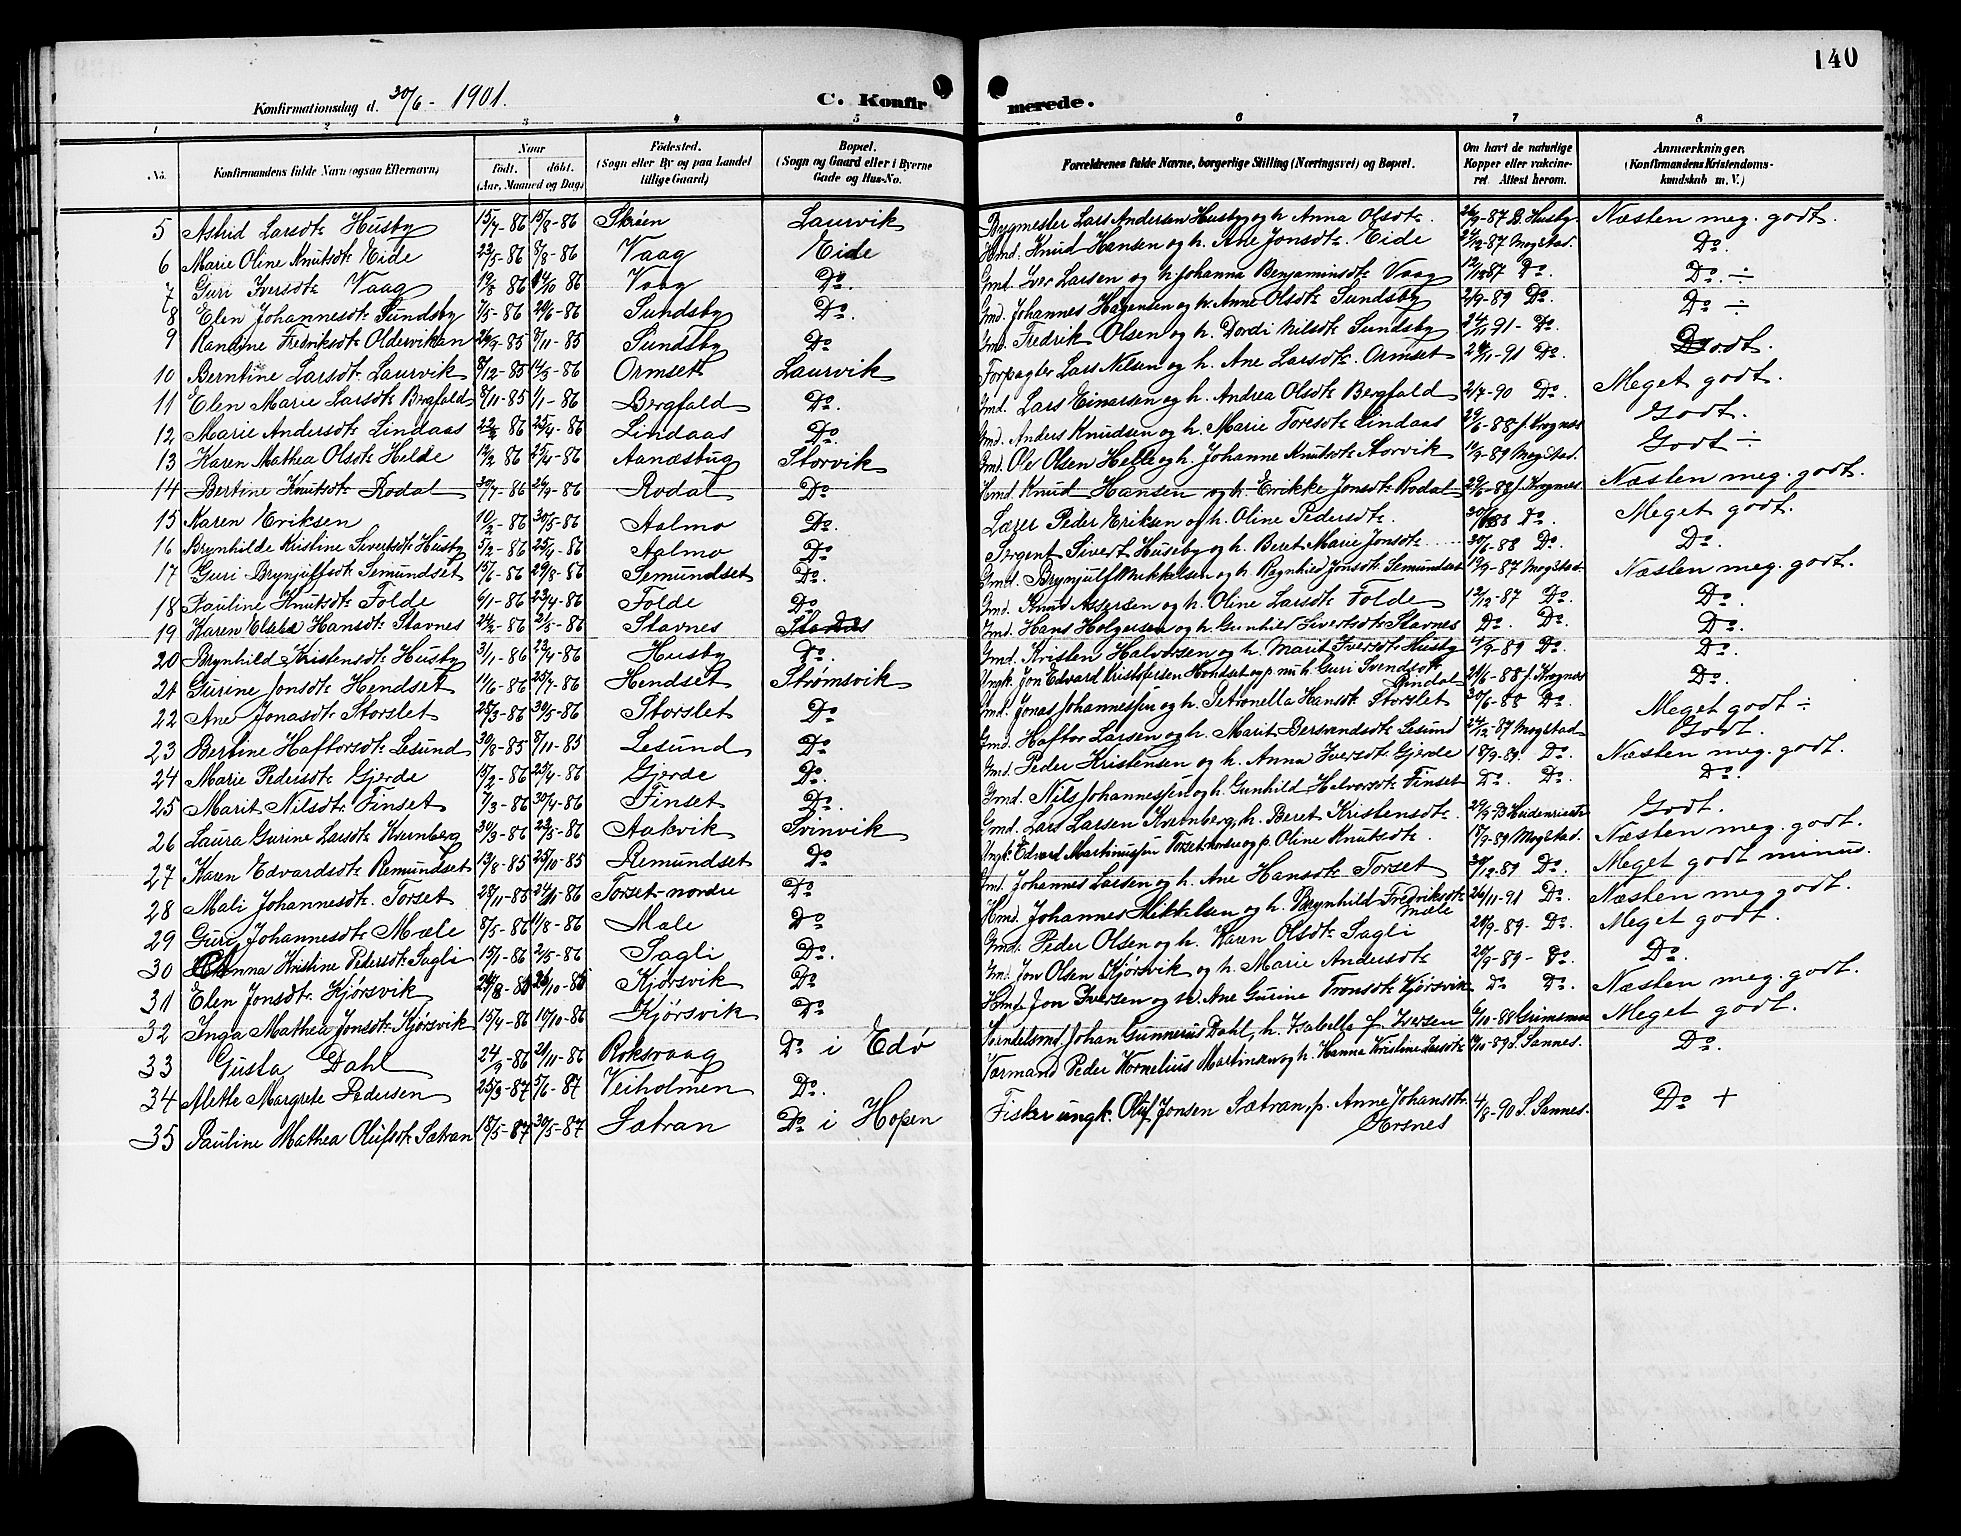 140
Konfirmationsdag d. 30/6 - 1901. C. Konfirmerede.
1 2 3 4 5 6 7 8
No. Konfirmandens fulde Navn (ogsaa Efternavn) Naar født. døbt. (Aar, Maaned og Dag) Fødested. (Sogn eller By og paa Landet tillige Gaard) Bopæl. (Sogn og Gaard eller i Byerne Gade og Hus-No. Forældrenes fulde Navne, borgerlige Stilling (Næringsvei) og Bopæl. Om havt de naturlige Kopper eller vaccineret. Attest herom. Anmærkninger, (Konfirmandens Kristendomskundskab m. V.)
5 Astrid Larsdt. Husby 15/7-86 15/8-86 Skrøen Laurvik Bygmester Lars Andersen Husby og h. Anna Olsdt. 26/9-87 B. Husby. Næsten meg. godt.
6 Marie Oline Knutsdt. Eide 23/5-86 8/8-86 Vaag Eide Hmd. Knud Hansen og h. Ane Jonsdt. Eide 24/12-87 Mogstad. Do.
7 Guri Iversdt. Vaag Vaag Do. Gmd. Iver Larsen og h. Johanna Benjaminsdt. Vaag 12/12 87 Do. Do. ÷
8 Elen Johannesdt. Sundsby 7/5-86 20/6-86 Sundsby Do. Gmd. Johannes Hagensen og h. Anne Olsdt. Sundsby 2/9-89 Do. Do ÷
9 Randine Fredriksdt. Oldervikan 26/9-85 8/11-85 Sundsby Do Gmd. Fredrik Olsen og h. Dordi Nilsdt. Sundsby 24/11-91- Do. Godt.
10 Berntine Larsdt. Laurvik 8/12-85 14/5-86 Ormset Laurvik Forpagter Lars Nilsen og h. Ane Larsdt. Ormset 24/11-91 Do. Meget godt.
11 Elen Marie Larsdt. Bergfald 8/11-85 1/1-86 Bergfald Do. Gmd. Lars Einarsen og h. Andrea Olsdt. Bergfald 2/7-90 Do. Godt.
12 Marie Andersdt. Lindaas 25/4-86 Lindaas Do. Gmd. Anders Knudsen og h. Marie Toresdt. Lindaas 29/6-88 J. Krognes Godt ÷
13 Karen Mathea Olsdt. Helde 12/2 86 25/4-86 Aanæsbug Storvik Gmd. Ole Olsen Helle og h. Johanne Knutsdt. Storvik 12/9-89 Mogstad. Næsten meg. godt.
14 Bertine Knutsdt. Rodal 30/7-86 26/9-86 Rodal Do Hmd. Knud Hansen og h. Erikke Jonsdt. Rodal 29/6-88 J. Krognes Meget godt.
15 Karen Eriksen 10/3-86 30/5-86 Aalmo Do. Lærer Peder Eriksen og h. Oline Pedersdt. 30/6 88 Do. Do.
16 Brynhilde Kristine Sivertsdt. Husby 5/2-86 25/4-86 Aalmo Do Sergent Sivert Huseby og h. Beret Marie Jonsdt. 30/6-88 Do. Næsten meg. godt.
17 Guri Brynjulfsdt. Semundset 15/6-86 29/8-86 Semundset Do. Gmd. Brynjulf Mikkelsen og h. Ragnhild Jonsdt. Semundset 19/9-87 Mogstad. Do.
18 Pauline Knutsdt. Folde 6/1-86 23/4-86 Folde Do Gmd. Knud Assersen og h. Oline Larsdt. Folde 12/12-87 Do. Do.
19 Karen Hansdt. Stavnes 24/2-86 2/5-86 Stavnes Gmd. Hans Holgersen og h. Gunhild Sivertsdt. Stavnes Do. Do. Do.
20 Brynhild Kristensdt. Husby 3/1-86 23/4-86 Husby Do. Gmd. Kristen Halvorsen og h. Marit Iversdt. Husby 4/9-89 Do. Do.
21 Gurine Jonsdt. Hendset 11/6-86 25/7-86 Hendset Strømsvik Ungk. Jon Edvard Kristofersen Hendset og p. nu h. Guri Svendsdt. Rindal 21/6-88 J. Krognes Meget godt ÷
22 Ane Jonasdt. Storslet 25/3-86 30/5-86 Storslet Do Gmd. Jonas Johannessen og h. Petronella Hansdt. Storslet 30/6-88 Do. Godt.
23 Bertine Haftorsdt. Lesund 30/8-85 8/11-85 Lesund Do Gmd. Haftor Larsen og h. Marit Bersvendsdt. Lesund 24/12-87 Mogstad Næsten meg. godt.
24 Marie Pedersdt. Gjerde 15/2-86 25/4-86 Gjerde Do. Gmd. Peder Kristensen og h. Anna Iversdt. Gjerde 18/9-89. Do. Do.
25 Marit Nilsdt. Finset 7/3-86 30/4-86 Finset Do. Gmd. Nils Johannessen og h. Gunhild Halvorsdt. Finset Do. Do. Godt.
26 Laura Gurine Larsdt. Kvernberg 30/3-86 23/5-86 Aakvik Svinvik Gmd. Lars Larsen Kvernberg, h. Beret Kristensdt. Næsten meg. godt.
27 Karen Edvardsdt. Remundset 13/8-85 25/10-85 Remundset Do Ungk. Edvard Martinussen Torset nordre og p. Oline Knutsdt. 18/9-89 Mogstad. Meget godt minus.
28 Mali Johannesdt. Torset 28/11-85 Torset-nordre Do Gmd. Johannes Larsen og h. Ane Hansdt. Torset 30/12-89 Do. Næsten meg godt.
29 Guri Johannesdt. Mæle 8/5-86 11/8-86 Male Do Hmd. Johannes Mikkelsen og h. Brynhild Fredriksdt. Mæle 26/11-91 Do. Meget godt.
30 Anna Kristine Pedersdt. Sagli 15/1-86 2/5-86 Sagli Do. Gmd. Peder Olsen og h. Karen Olsdt. Sagli 20/9-89- Do. Do.
31 Elen Jonsdt. Kjørsvik Kjørsvik Do Gmd. Jon Olsen Kjørsvik og h. Marie Andersdt. 20/9-89- Do. Næsten meg. godt.
32 Inga Mathea Jonsdt. Kjørsvik 15/4-86 10/10-86 Kjørsvik Do Hmd. Jon Iversen og h. Ane Gurine Tronsdt. Kjørsvik Do Do. Meget godt.
33 Gusta Dahl 24/9-86 21/11-86 Roksvaag Do i Edø Handelsmd. Johan Gunnerius Dahl, h. Isabella f. Iversen 6/10-88 Grimsmoe Do.
34 Alette Margrete Pedersen 25/3-87 5/6-87 Veiholmen Do. Værmand Peder Kornelius Martinsen og h. Hanna Kristine Larsdt. S. Sannes.
35 Pauline Mathea Olufsdt. Sætran 18/5-87 30/5-87 Sætran Do i Hopen Fisker ungk. Oluf Jonsen Sætran, p. Anne Johansdt. Gresnes 4/8-90 S. Sannes. Do +